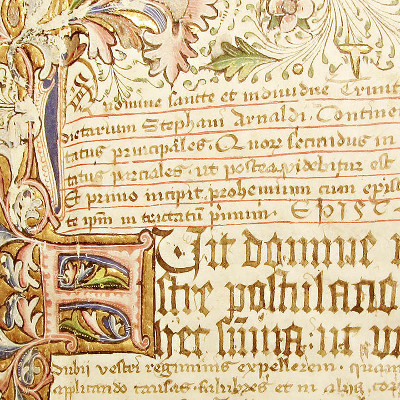 In nomine sancte et individue Trinit
dietarium Stephani Arnaldi. Contine
tatus principales. Quorum secundus in
tatus parciales. ut postea videbitur est
Et primo incipit prohemium cum epis
te ipm in tractatu primum. EPIST
ut domine
stre postulacio
het suma. ut
Dubii vestri regiminis expellerem. quam
applicando causas salubres et in aliq cor